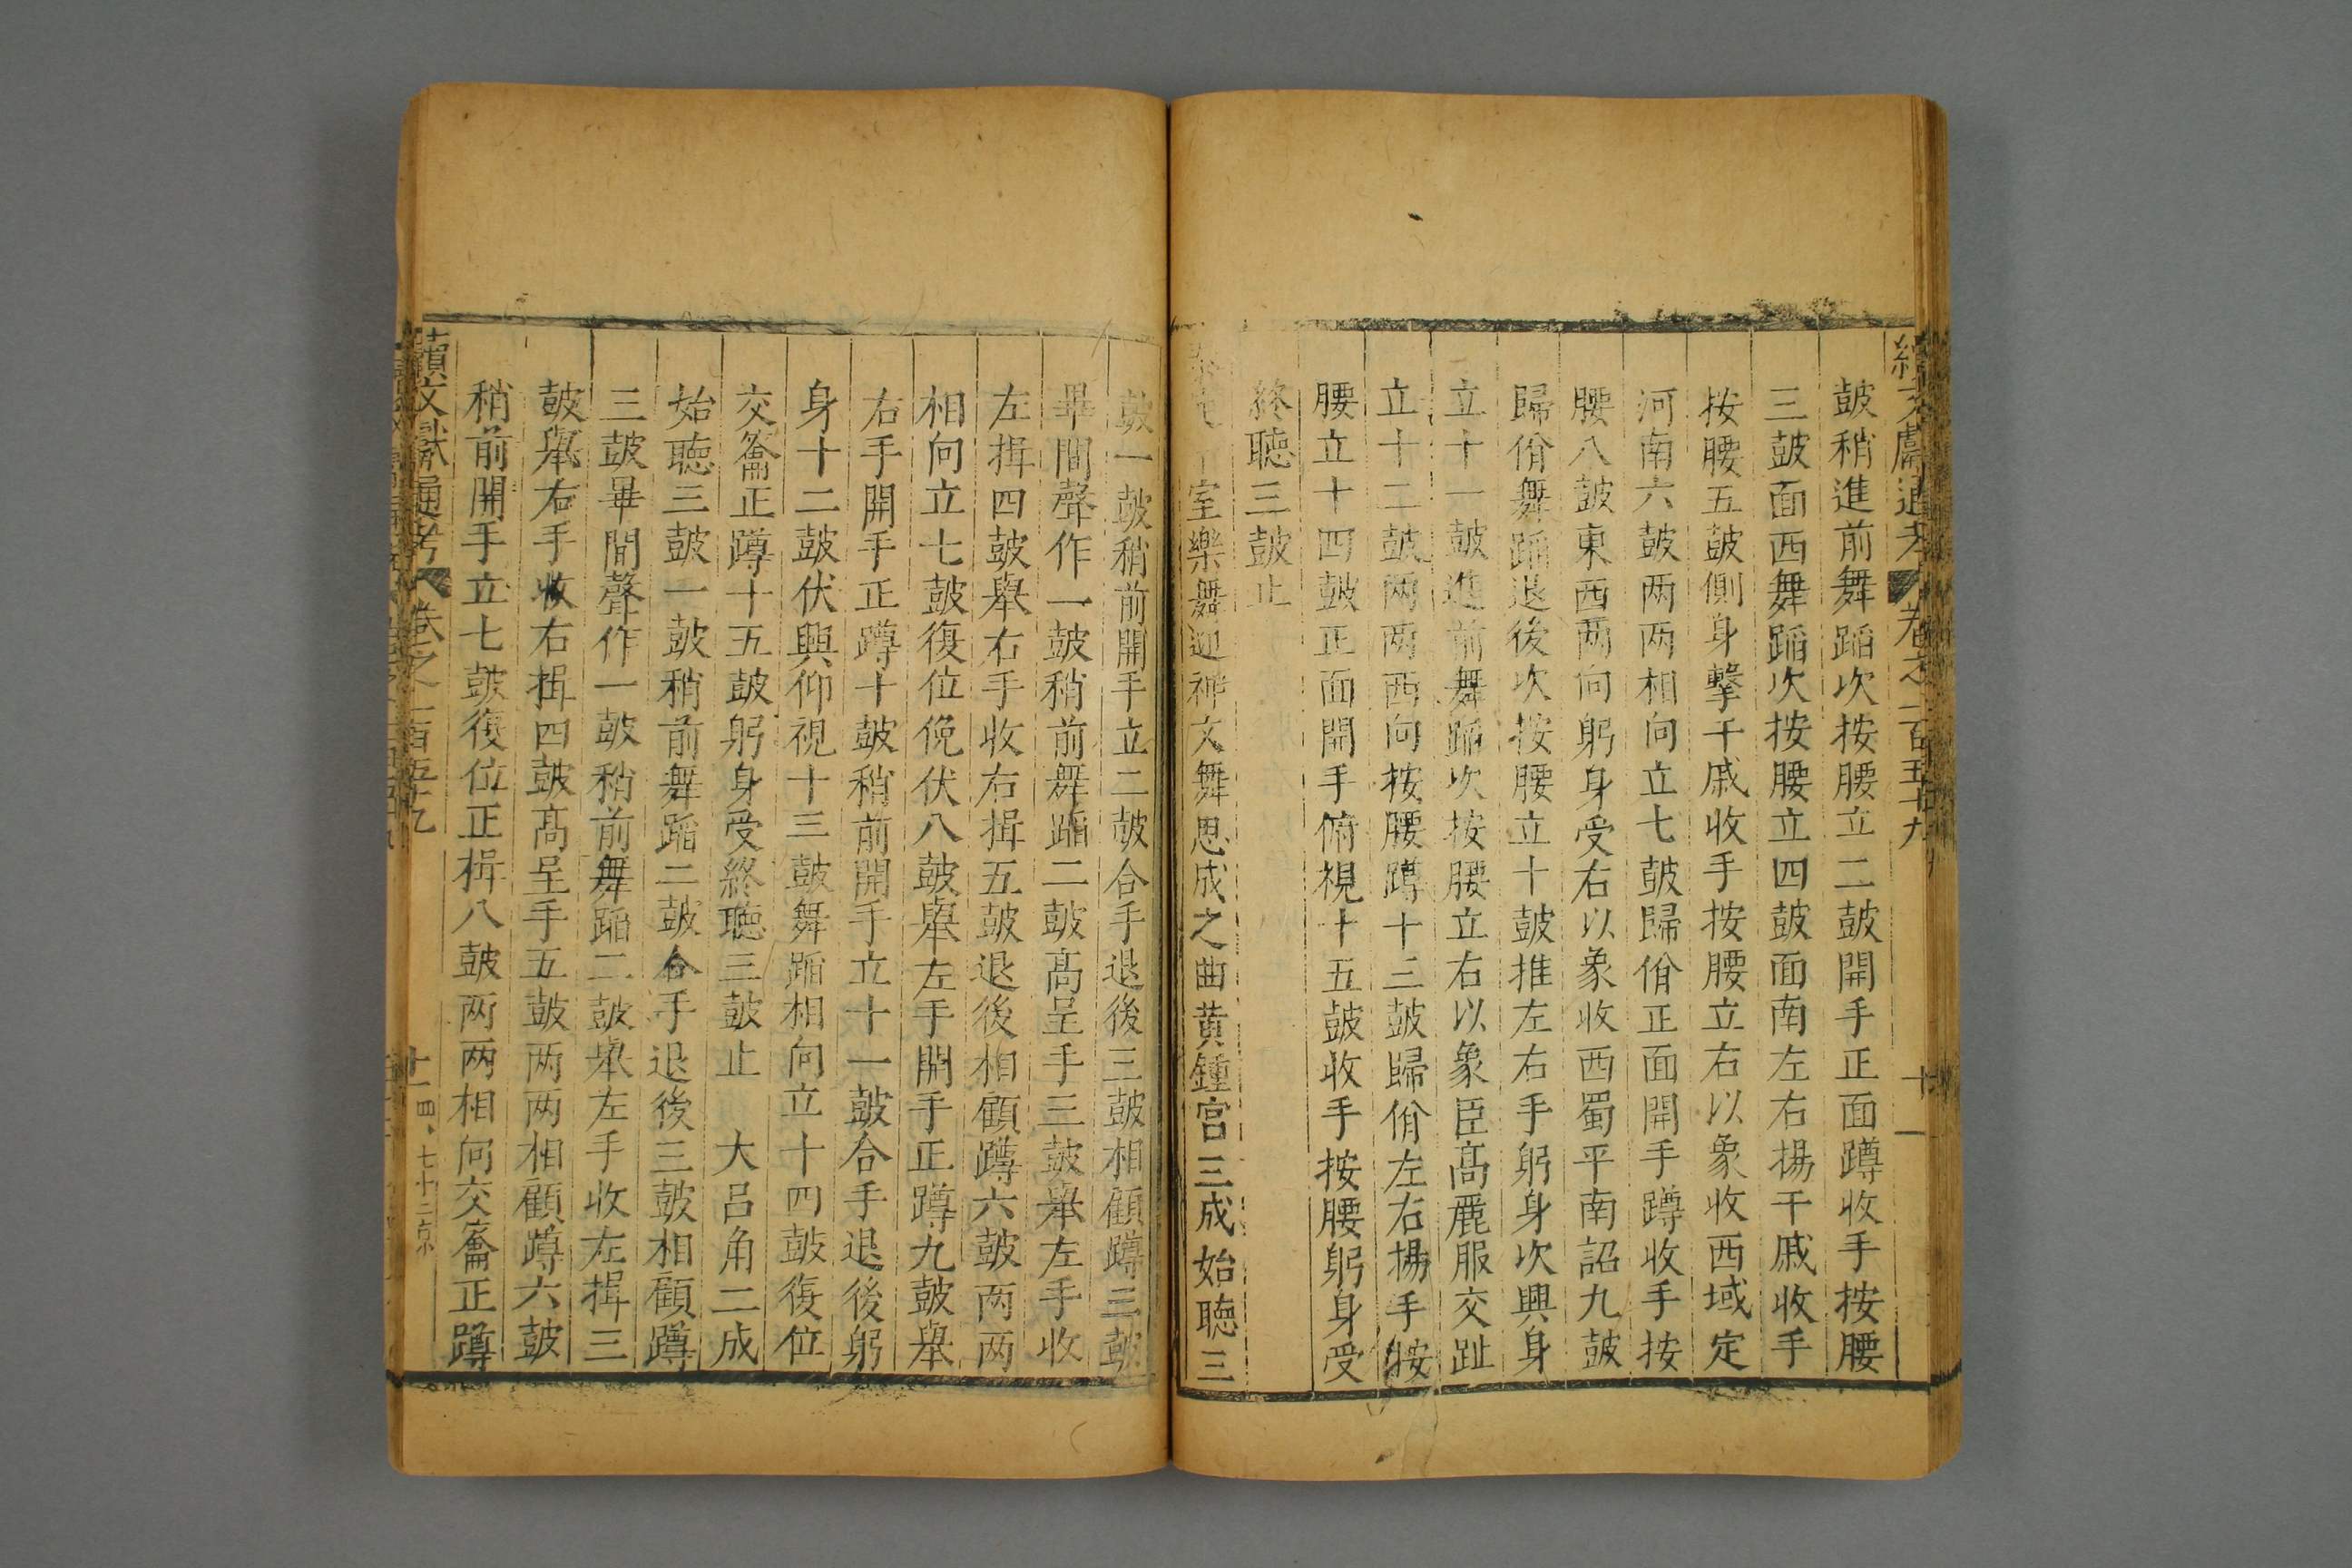 續文獻通考 卷之一百五十九 十一
鼔稍進前舞蹈次按腰立二鼔開手正面蹲收手按腰
三鼔面西舞蹈次按腰立四鼔面南左右揚干戚收手
按腰五鼔側身擊干戚收手按腰立右以象收西域定
河南六鼔两两相向立七鼔歸佾正面開手蹲收手按
腰八鼔東西两向躬身受右以象收西蜀平南詔九鼔
歸佾舞蹈退後次按腰立十鼔推左右手躬身次興身
立十一鼔進前舞蹈次按腰立右以象臣高麗服交趾
立十二鼔两两西向按腰蹲十三鼔歸佾左右揚手按
腰立十四鼔正面開手俯視十五鼔收手按腰躬身受
終聽三鼔止
室樂舞迎神文舞思成之曲黄鍾宫三成始聽三
鼔一鼔稍前開手立二鼔合手退後三鼔相顧蹲三鼔
畢間聲作一鼔稍前舞蹈二鼔髙呈手三鼔舉左手收
左揖四鼔舉右手收右揖五鼔退後相顧蹲六鼔两两
相向立七鼔復位俛伏八鼔舉左手開手正蹲九鼔舉
右手開手正蹲十鼔稍前開手立十一鼔合手退後躬
身十二鼔伏興仰視十三鼔舞蹈相向立十四鼔復位
交籥正蹲十五鼔躬身受終聽三鼔止 大吕角二成
始聽三鼔一鼔稍前舞蹈二鼔合手退後三鼔相顧蹲
三鼔畢間聲作一鼔稍前舞蹈二鼔舉左手收左揖三
鼔舉右手收右揖四鼔髙呈手五鼔两两相顧蹲六鼔
稍前開手立七鼔復位正揖八鼔两两相向交籥正蹲
續文獻通考 卷之一百五十九 十一 四、七十二